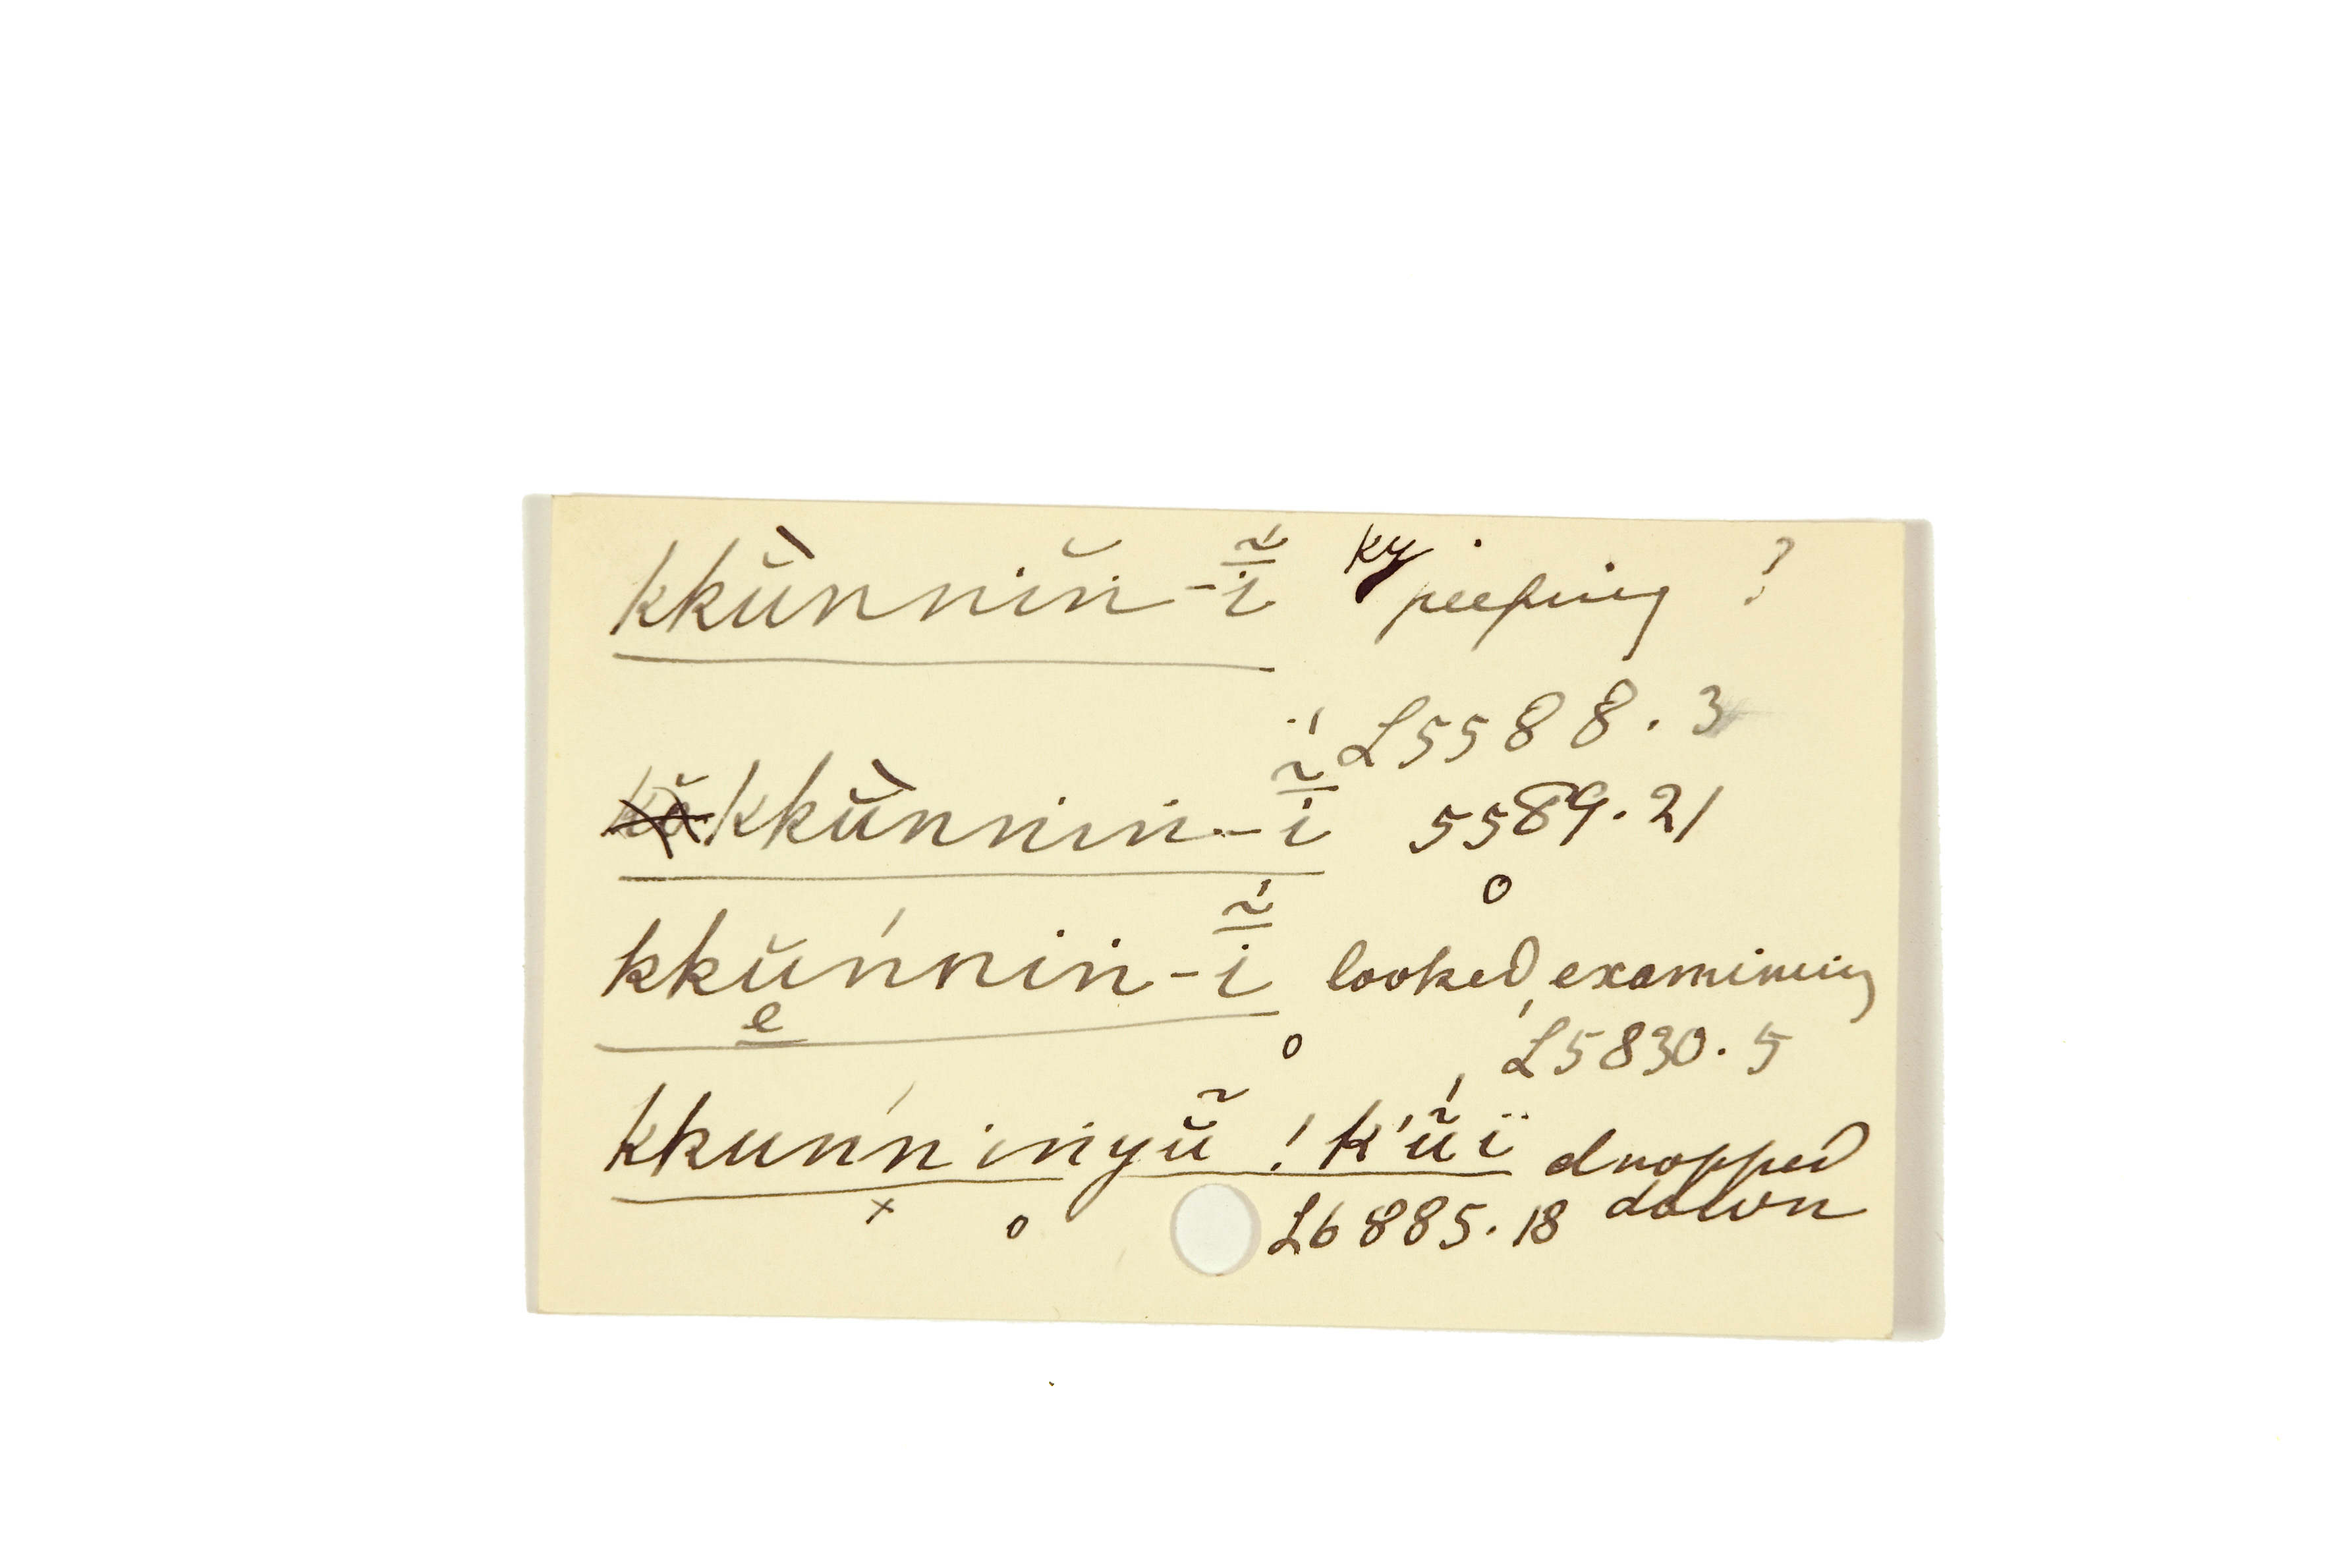 kkŭ̀nnin̆-ĩ̄́ ky peeping ?
L5588.3
kkŭ̀nnin-ĩ̄́ 5589.21
o
kkŭńnin-ĩ̄́ looked, examining
e
o L5830.5
kkunń'inyŭ̃ !k'ŭ̃́ï dropped
down
x o L6885.18